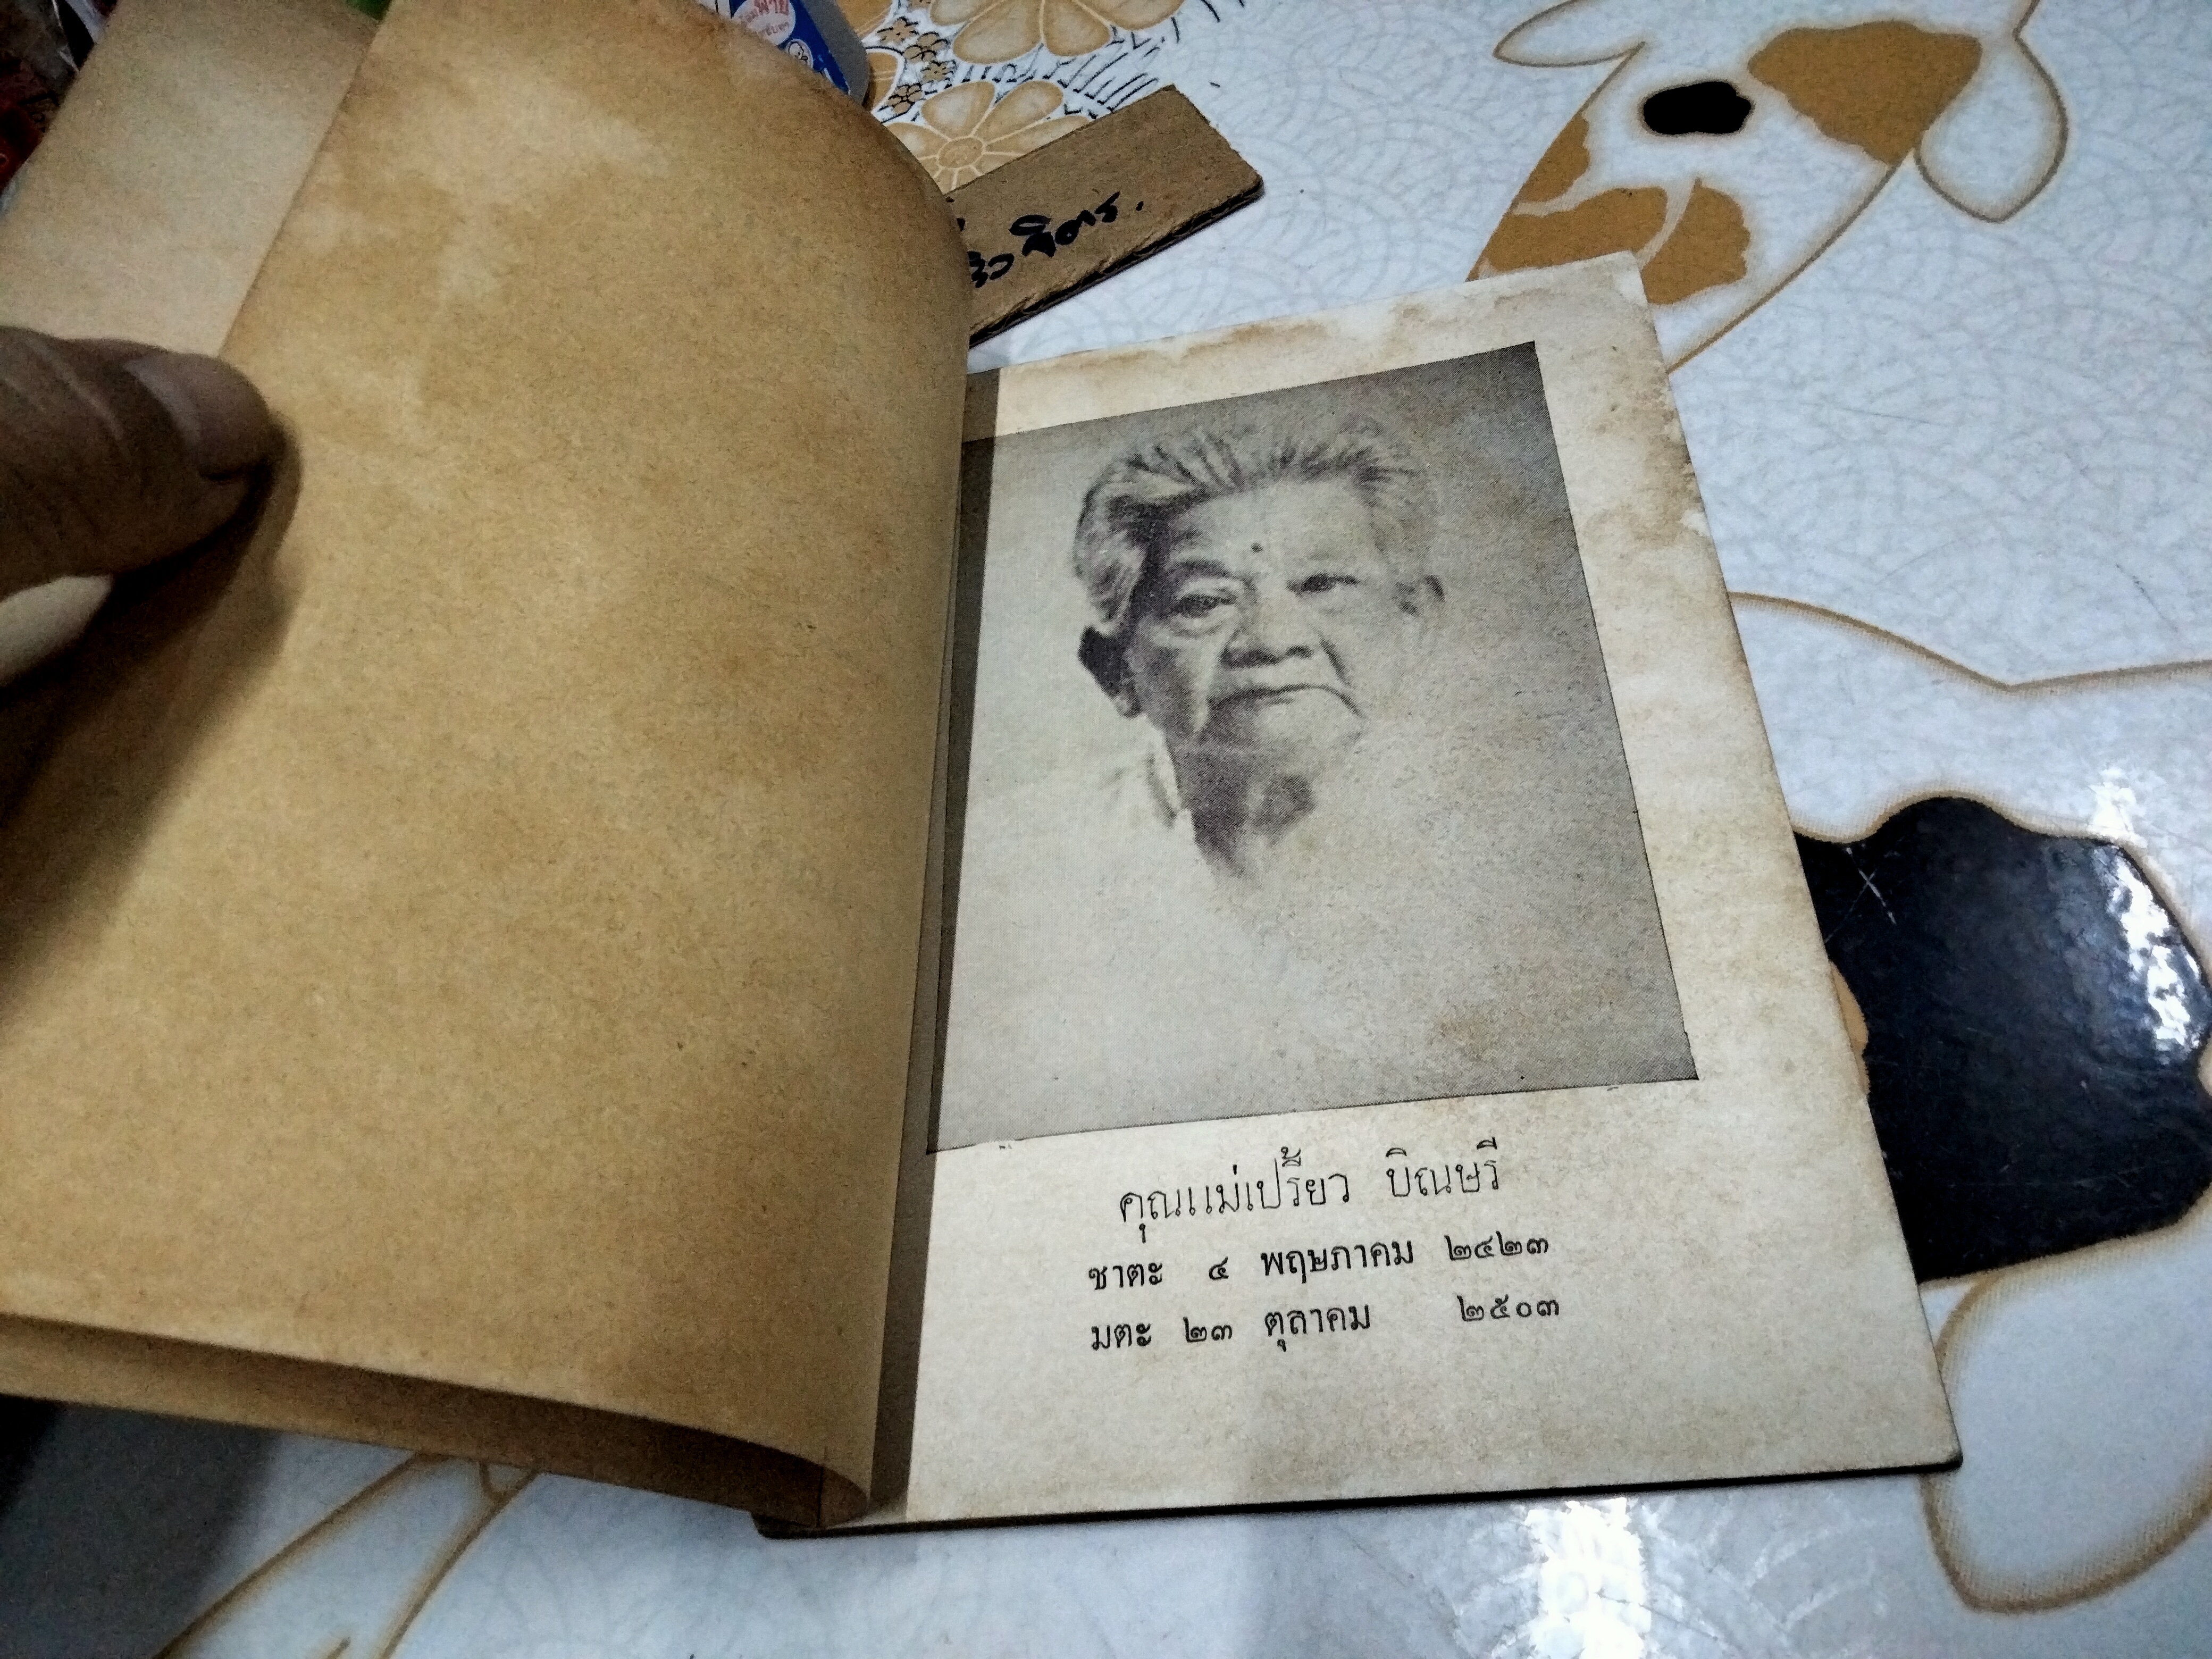 จิตร.
คุณแม่เปรี้ยว บิณษรี
ชาตะ ๔ พฤษภาคม ๒๔๒๓
มตะ ๒๓ ตุลาคม ๒๕๐๓